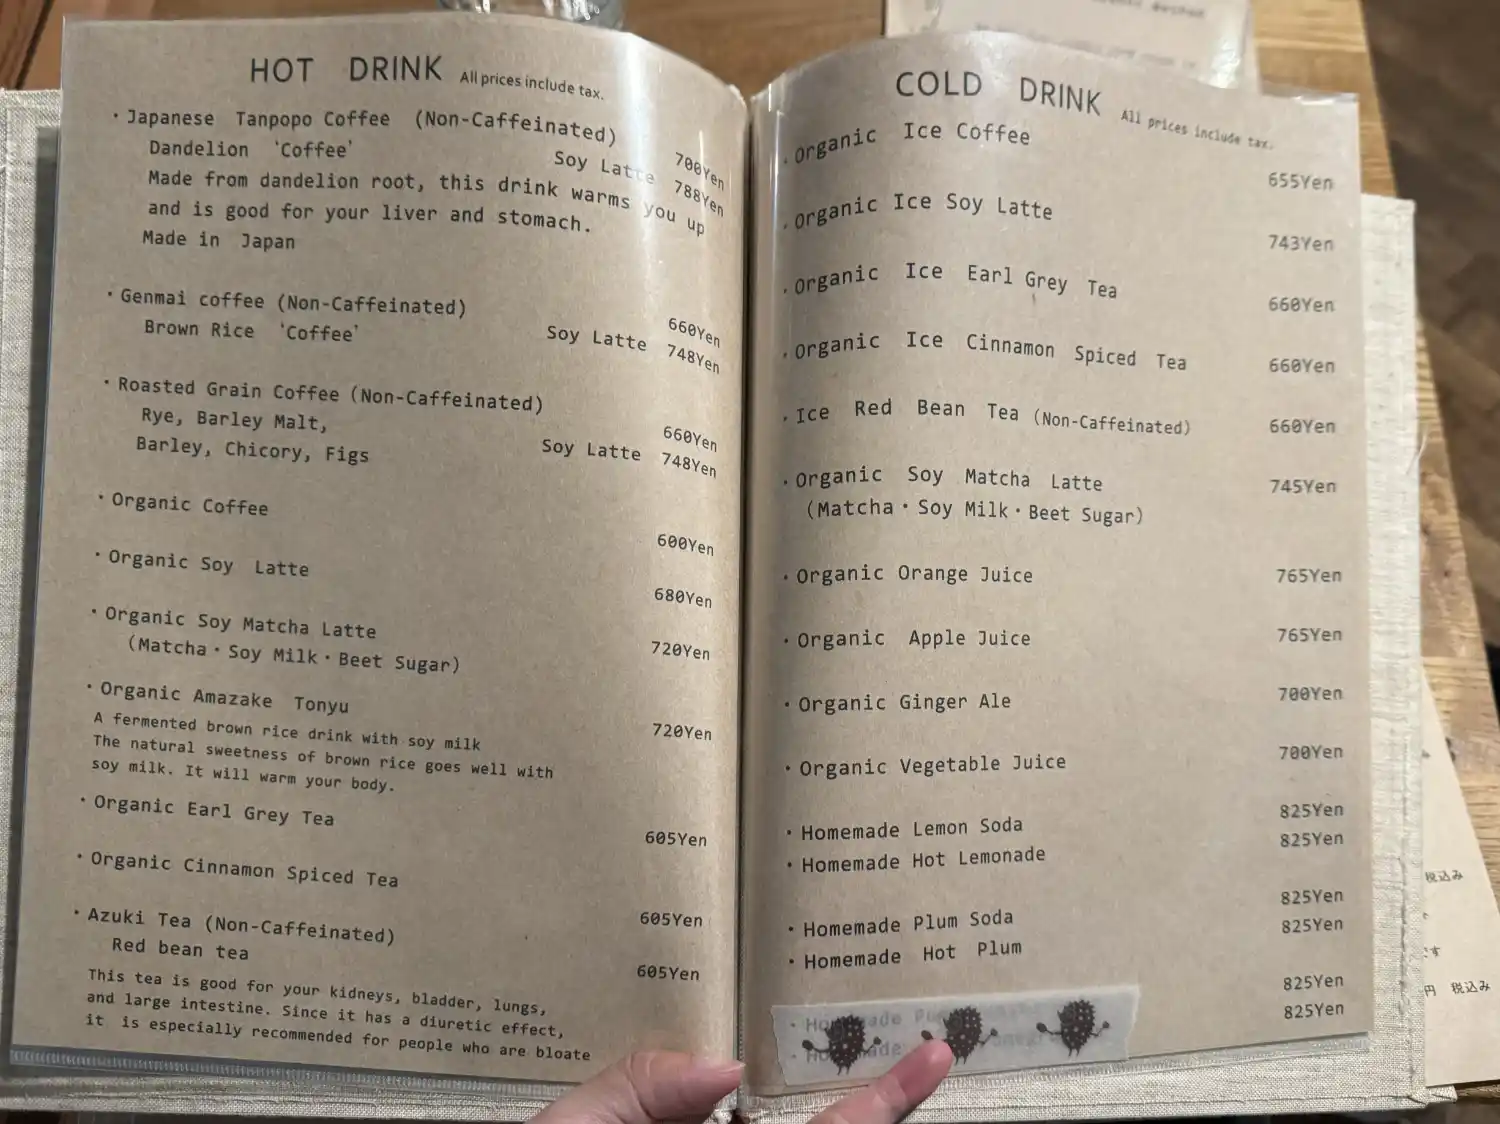 HOT DRINK All prices include tax.
・Japanese Tanpopo Coffee (Non-Caffeinated)
Dandelion 'Coffee' 700Yen
Soy Latte 788Yen
Made from dandelion root, this drink warms you up
and is good for your liver and stomach.
Made in Japan
・Genmai coffee (Non-Caffeinated) 660Yen
Brown Rice 'Coffee' Soy Latte 748Yen
・Roasted Grain Coffee (Non-Caffeinated)
Rye, Barley Malt, 660Yen
Barley, Chicory, Figs Soy Latte 748Yen
・Organic Coffee
600Yen
・Organic Soy Latte
680Yen
・Organic Soy Matcha Latte
(Matcha・Soy Milk・Beet Sugar) 720Yen
・Organic Amazake Tonyu
A fermented brown rice drink with soy milk 720Yen
The natural sweetness of brown rice goes well with
soy milk. It will warm your body.
・Organic Earl Grey Tea
605Yen
・Organic Cinnamon Spiced Tea
605Yen
・Azuki Tea (Non-Caffeinated)
Red bean tea 605Yen
This tea is good for your kidneys, bladder, lungs,
and large intestine. Since it has a diuretic effect,
it is especially recommended for people who are bloate
COLD DRINK All prices include tax.
・Organic Ice Coffee
655Yen
・Organic Ice Soy Latte
743Yen
・Organic Ice Earl Grey Tea
660Yen
・Organic Ice Cinnamon Spiced Tea 660Yen
・Ice Red Bean Tea (Non-Caffeinated) 660Yen
・Organic Soy Matcha Latte 745Yen
(Matcha・Soy Milk・Beet Sugar)
・Organic Orange Juice 765Yen
・Organic Apple Juice 765Yen
・Organic Ginger Ale 700Yen
・Organic Vegetable Juice 700Yen
・Homemade Lemon Soda 825Yen
・Homemade Hot Lemonade 825Yen
・Homemade Plum Soda 825Yen
・Homemade Hot Plum 825Yen
825Yen
825Yen
税込み
円 税込み